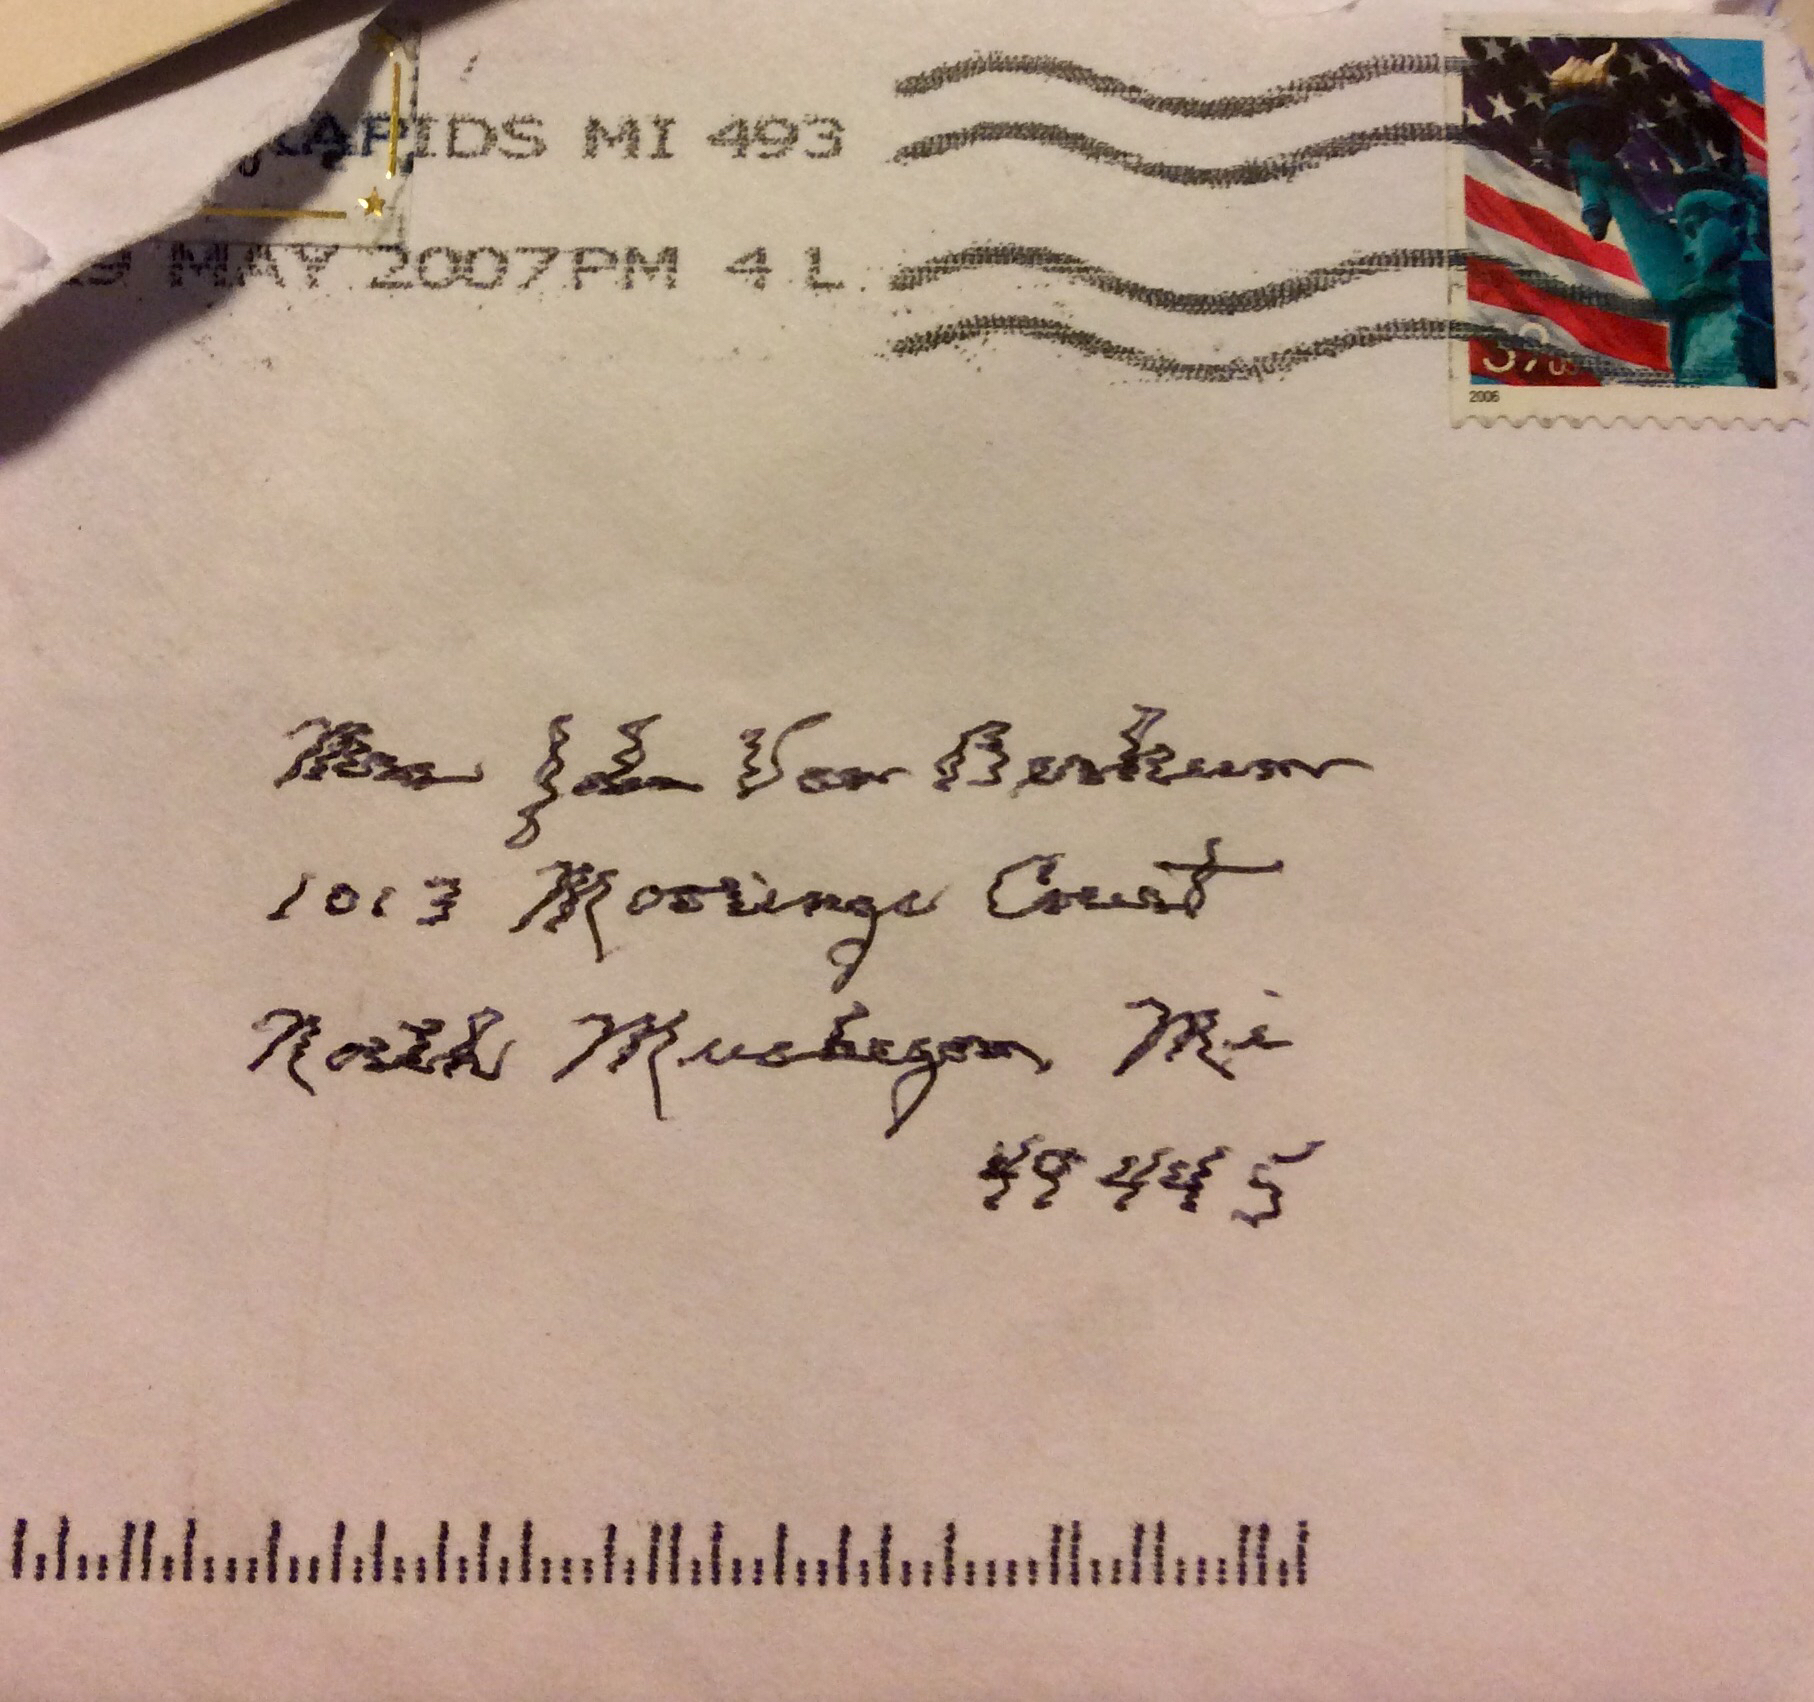 RAPIDS MI 493
MAY 2007 PM 4 L
39 USA
2006
Mrs John Van Berkum
1013 Moorings Court
North Muskegon, Mi
49445